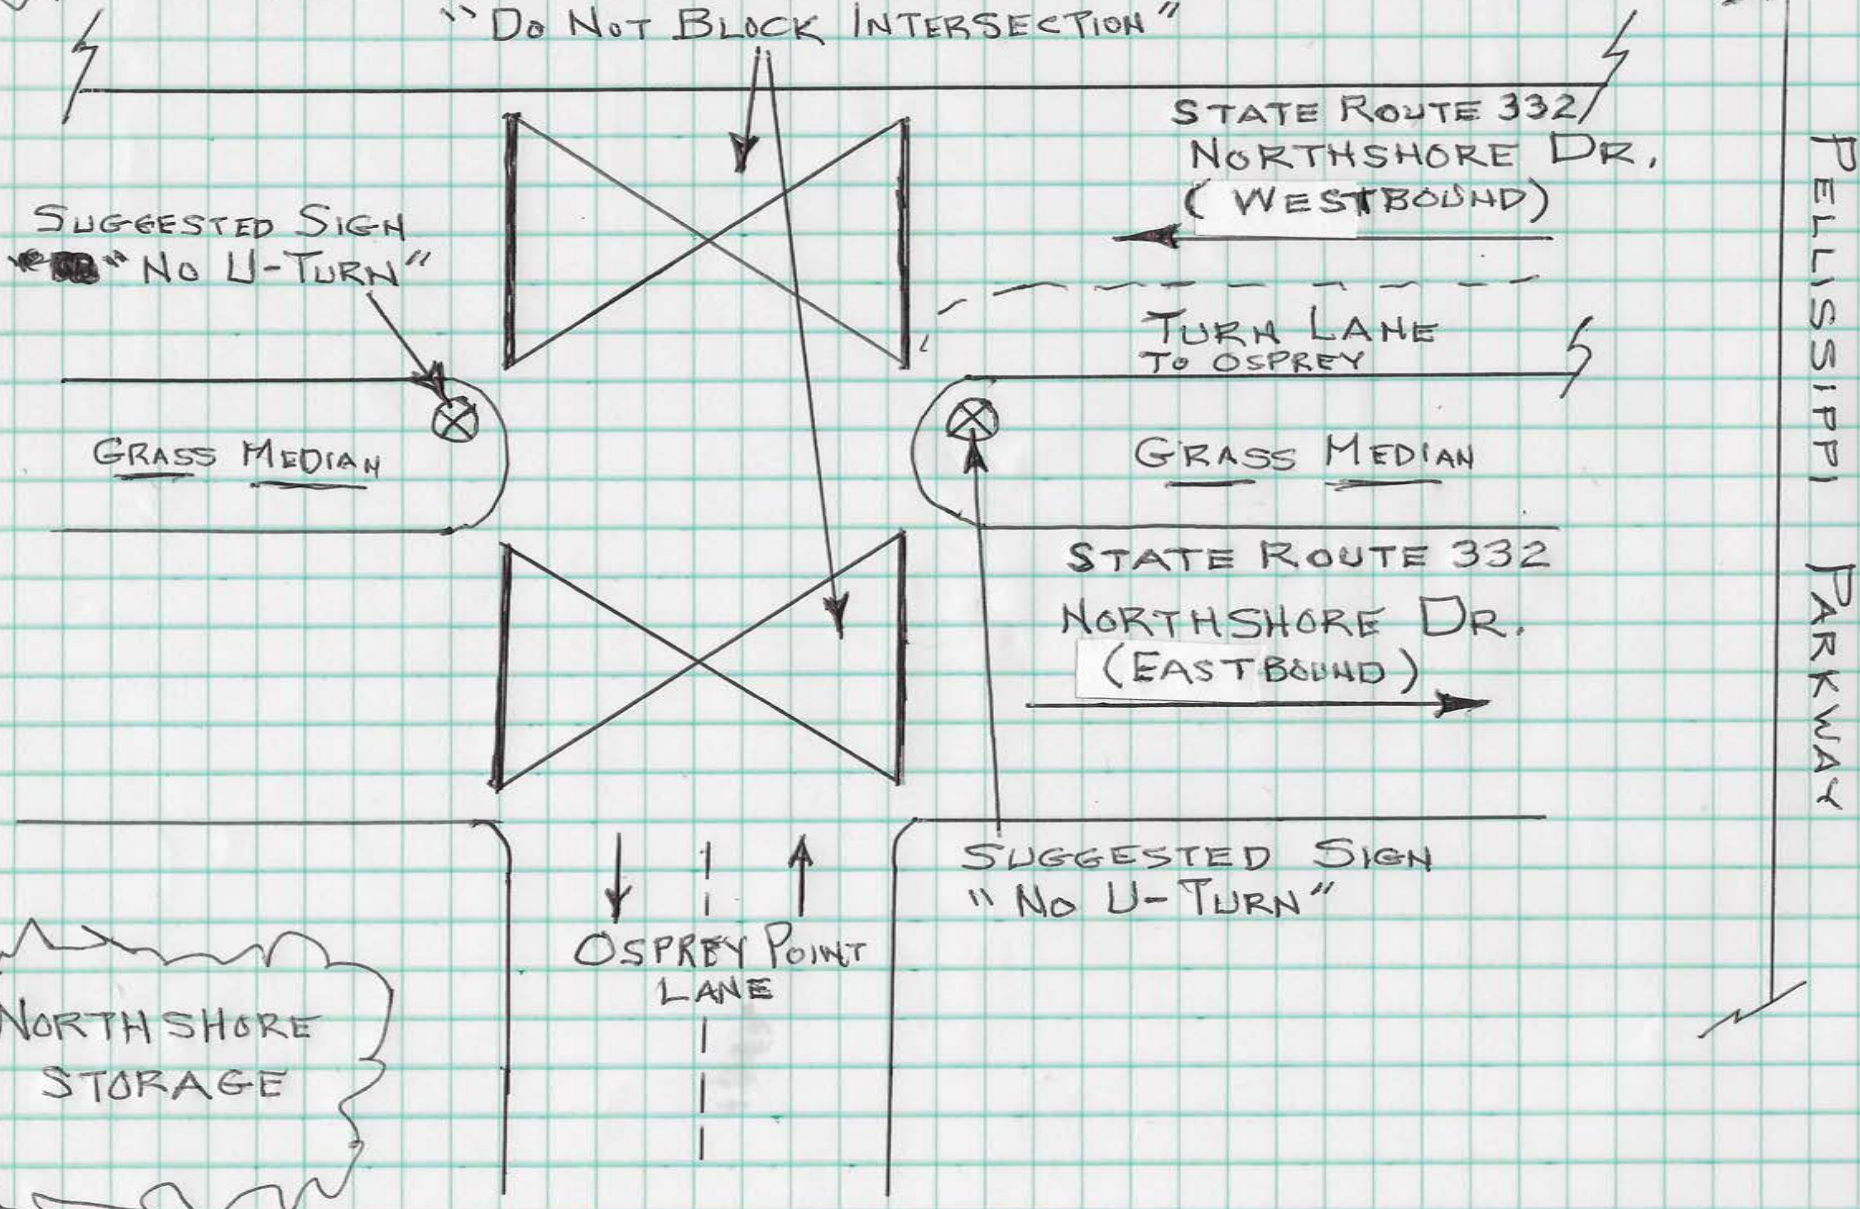 "DO NOT BLOCK INTERSECTION"
STATE ROUTE 332/
NORTHSHORE DR.
(WESTBOUND)
SUGGESTED SIGN
"NO U-TURN"
TURN LANE
TO OSPREY
GRASS MEDIAN
GRASS MEDIAN
STATE ROUTE 332
NORTHSHORE DR.
(EASTBOUND)
PELLISSIPPI PARKWAY
SUGGESTED SIGN
"NO U-TURN"
OSPREY POINT
LANE
NORTHSHORE
STORAGE